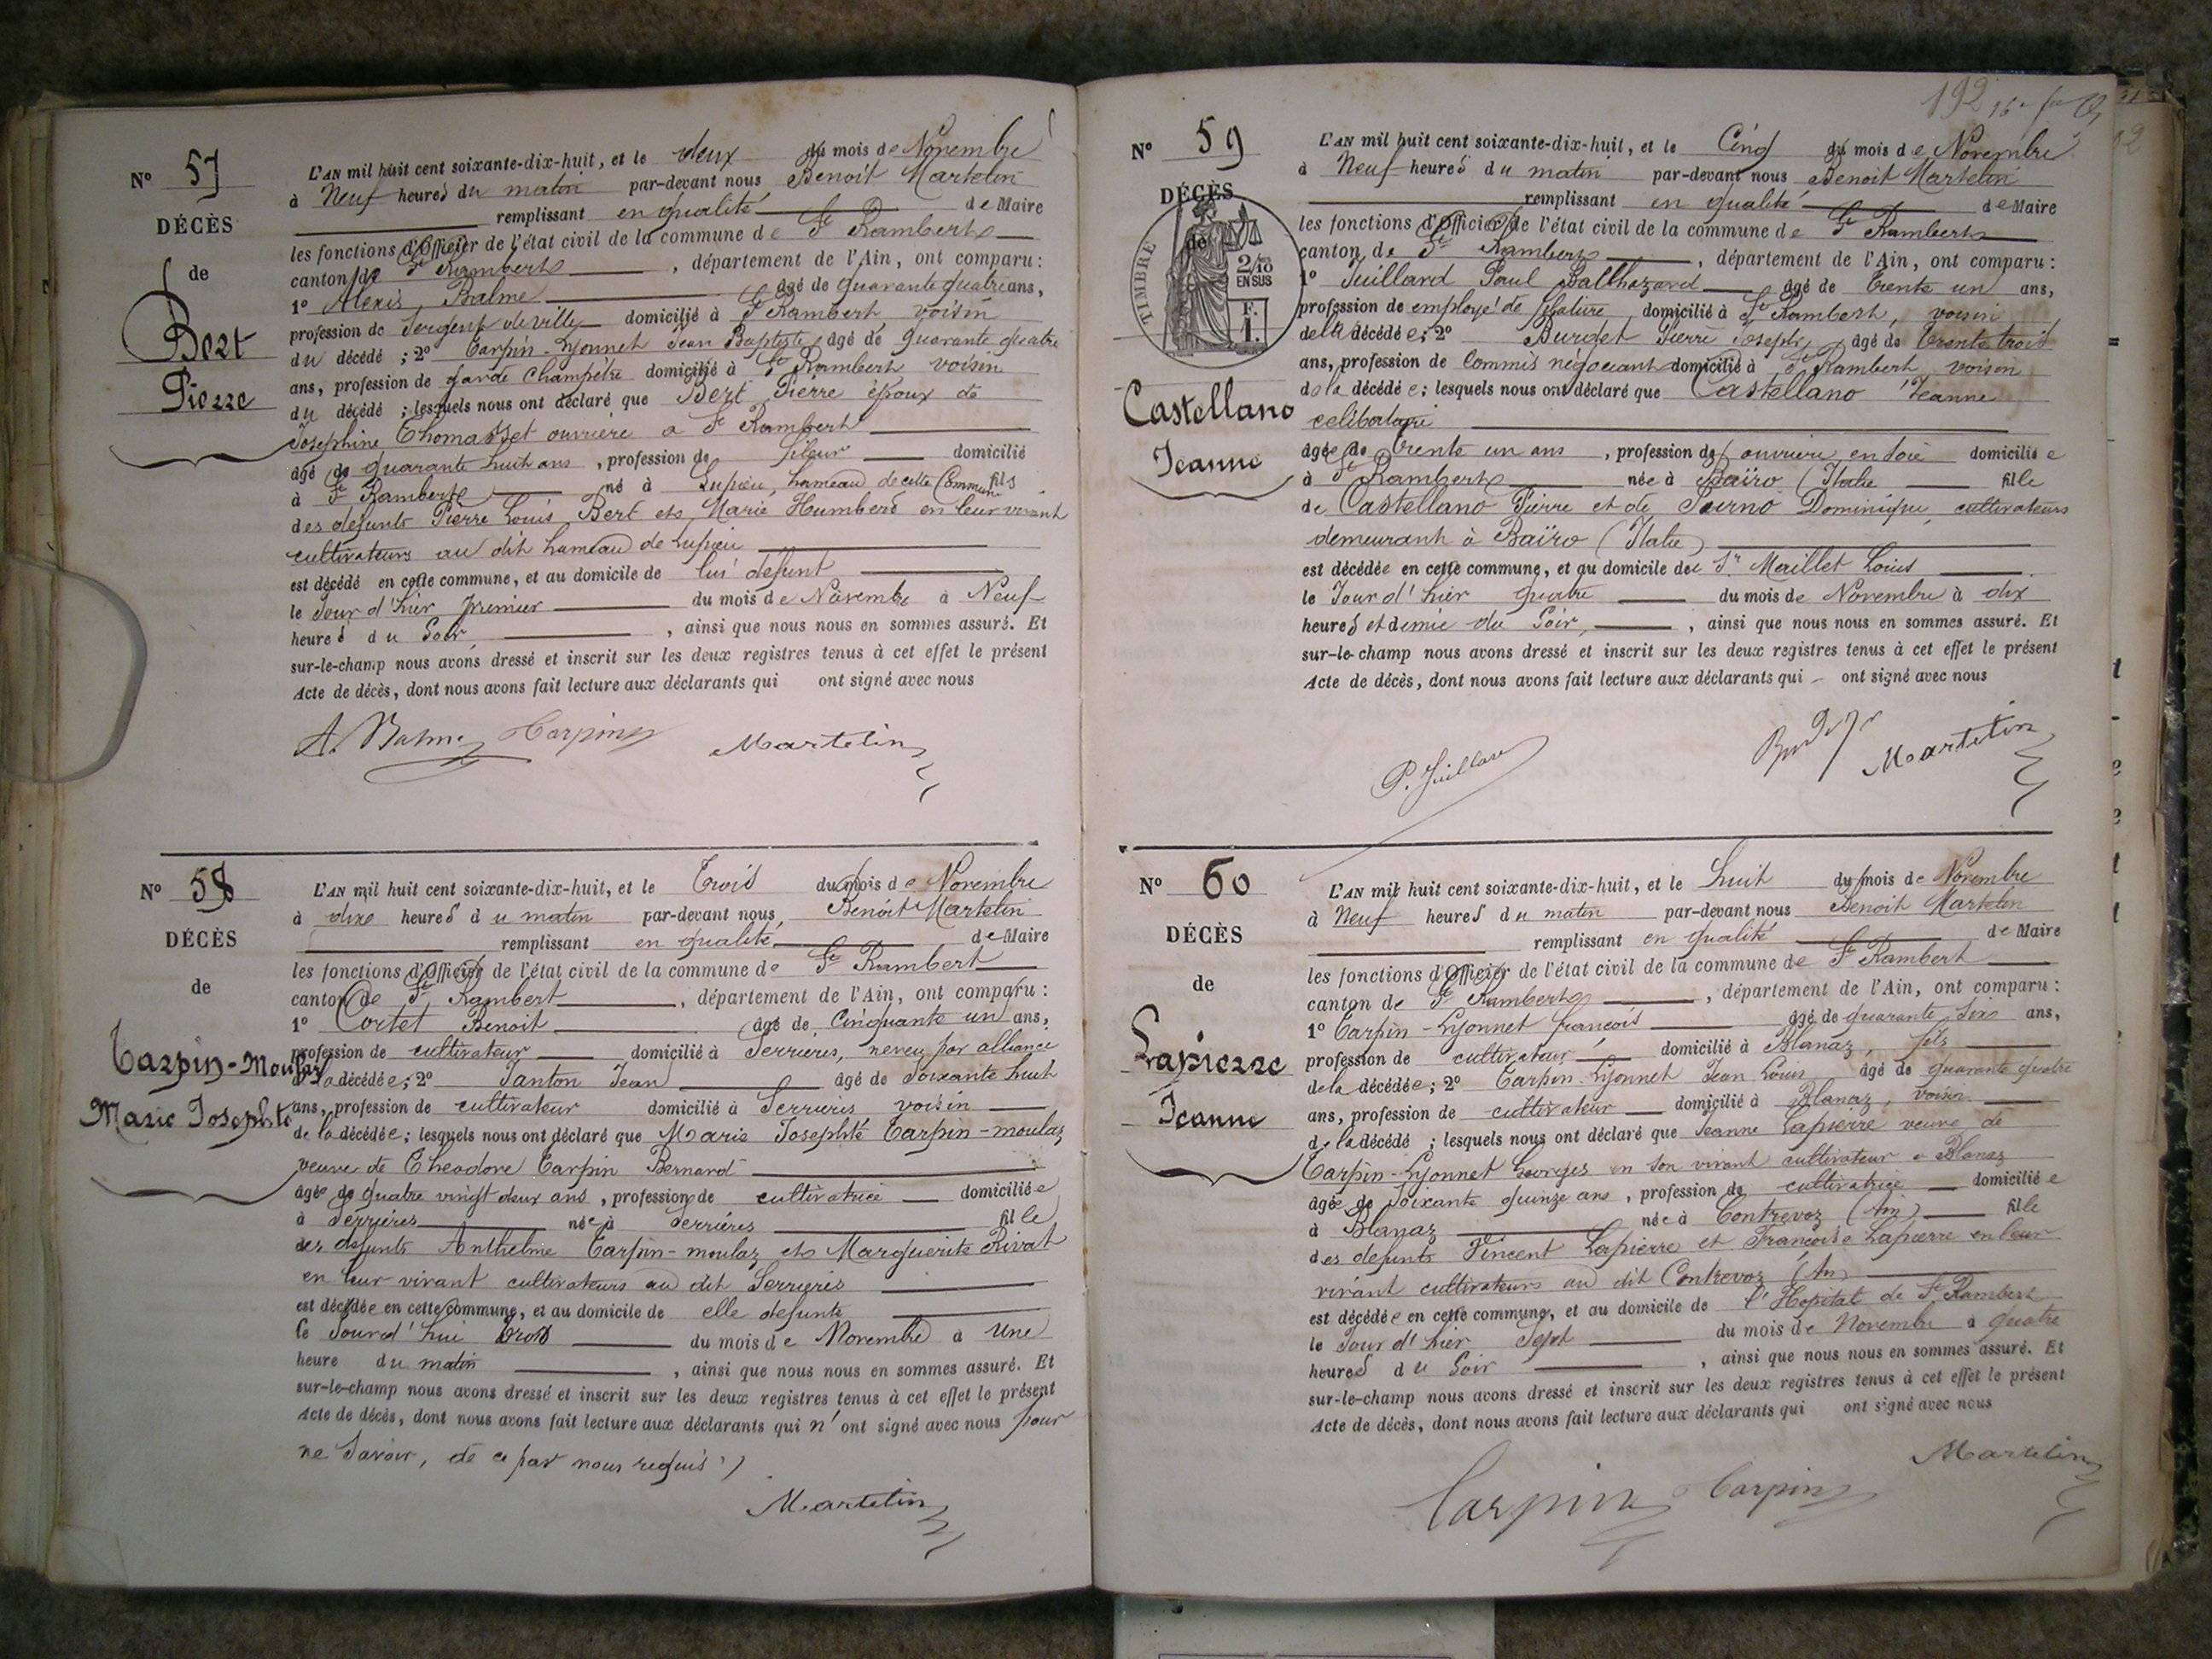 N° 57
DÉCÈS
de
Bert
Pierre
L'AN mil huit cent soixante-dix-huit, et le deux du mois de Novembre
à Neuf heures du matin par-devant nous Benoit Martelin
remplissant en qualité de Maire
les fonctions d'Officier de l'état civil de la commune de St Rambert
canton de St Rambert, département de l'Ain, ont comparu :
1° Alexis Balme âgé de quarante quatre ans,
profession de Sergent de ville domicilié à St Rambert, voisin
du décédé ; 2° Tarpin-Lyonnet Jean Baptiste, âgé de quarante quatre
ans, profession de garde champêtre domicilié à St Rambert voisin
du décédé ; lesquels nous ont déclaré que Bert Pierre époux de
Josephine Thomasset ouvrière a St Rambert
âgé de quarante huit ans, profession de fileur domicilié
à St Rambert né à Lupieu, hameau de cette Commune fils
des defunts Pierre Louis Bert et Marie Humbert en leur vivant
cultivateurs au dit hameau de Lupieu
est décédé en cette commune, et au domicile de lui defunt
le Jour d'hier premier du mois de Novembre à Neuf
heures du Soir, ainsi que nous nous en sommes assuré. Et
sur-le-champ nous avons dressé et inscrit sur les deux registres tenus à cet effet le présent
Acte de décès, dont nous avons fait lecture aux déclarants qui ont signé avec nous
A. Balme Tarpin Martelin
N° 58
DÉCÈS
de
Tarpin-Moulaz
Marie Josephte
L'AN mil huit cent soixante-dix-huit, et le Trois du mois de Novembre
à dix heures du matin par-devant nous, Benoit Martelin
remplissant en qualité de Maire
les fonctions d'Officier de l'état civil de la commune de St Rambert
canton de St Rambert, département de l'Ain, ont comparu :
1° Cortet Benoit âgé de Cinquante un ans,
profession de cultivateur domicilié à Serrières, neveu par alliance
de la décédée ; 2° Janton Jean âgé de Soixante huit
ans, profession de cultivateur domicilié à Serrieres voisin
de la décédée ; lesquels nous ont déclaré que Marie Josephté Tarpin-moulaz
veuve de Theodore Tarpin Bernard
âgée de quatre vingt deux ans, profession de cultivatrice domiciliée
à Serrières née à Serrières fille
des defunts Anthelme Tarpin-moulaz et Marguerite Rivat
en leur vivant cultivateurs au dit Serrieres
est décédée en cette commune, et au domicile de elle defunte
le Jourd'hui trois du mois de Novembre à Une
heure du matin, ainsi que nous nous en sommes assuré. Et
sur-le-champ nous avons dressé et inscrit sur les deux registres tenus à cet effet le présent
Acte de décès, dont nous avons fait lecture aux déclarants qui n'ont signé avec nous pour
ne Savoir, de ce par nous requis
Martelin
192
N° 59
DÉCÈS
de
TIMBRE
2/10
EN SUS
F.
1.
Castellano
Jeanne
L'AN mil huit cent soixante-dix-huit, et le Cinq du mois de Novembre
à Neuf heures du matin par-devant nous Benoit Martelin
remplissant en qualité de Maire
les fonctions d'Officier de l'état civil de la commune de St Rambert
canton de St Rambert, département de l'Ain, ont comparu :
1° Juillard Paul Balthazard âgé de trente un ans,
profession de employé de filature domicilié à St Rambert, voisin
de la décédée ; 2° Burdet Pierre Joseph, âgé de trente trois
ans, profession de Commis négociant domicilié à St Rambert voisin
de la décédée ; lesquels nous ont déclaré que Castellano Jeanne
celibataire
âgée de trente un ans, profession de ouvrière en soie domiciliée
à St Rambert née à Baïro (Italie fille
de Castellano Pierre et de Dominique, cultivateurs
demeurant à Baïro (Italie)
est décédée en cette commune, et au domicile de Sr Maillet Louis
le Jour d'hier quatre du mois de Novembre à dix
heures et demie du Soir, ainsi que nous nous en sommes assuré. Et
sur-le-champ nous avons dressé et inscrit sur les deux registres tenus à cet effet le présent
Acte de décès, dont nous avons fait lecture aux déclarants qui ont signé avec nous
P. Juillard Burdet Martelin
N° 60
DÉCÈS
de
Lapierre
Jeanne
L'AN mil huit cent soixante-dix-huit, et le huit du mois de Novembre
à Neuf heures du matin par-devant nous Benoit Martelin
remplissant en qualité de Maire
les fonctions d'Officier de l'état civil de la commune de St Rambert
canton de St Rambert, département de l'Ain, ont comparu :
1° Tarpin-Lyonnet François âgé de quarante Six ans,
profession de cultivateur domicilié à Blanaz, fils
de la décédée ; 2° Tarpin-Lyonnet Jean Louis âgé de quarante quatre
ans, profession de cultivateur domicilié à Blanaz, voisin
de la décédé ; lesquels nous ont déclaré que Jeanne Lapierre veuve de
Tarpin-Lyonnet Georges en son vivant cultivateur à Blanaz
âgée de Soixante quinze ans, profession de cultivatrice domiciliée
à Blanaz née à Contrevoz (Ain) fille
des defunts Vincent Lapierre et Françoise Lapierre en leur
vivant cultivateurs au dit Contrevoz (Ain)
est décédée en cette commune, et au domicile de l'Hopital de St Rambert
le Jour d'hier Sept du mois de Novembre à quatre
heures du Soir, ainsi que nous nous en sommes assuré. Et
sur-le-champ nous avons dressé et inscrit sur les deux registres tenus à cet effet le présent
Acte de décès, dont nous avons fait lecture aux déclarants qui ont signé avec nous
Tarpin Tarpin Martelin